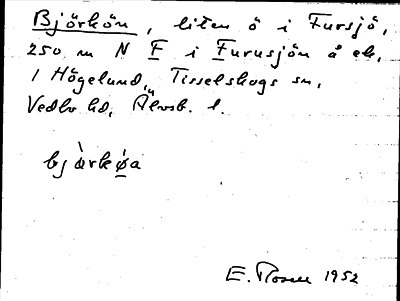 Björkön, liten ö i Fursjö,
250 m N F i Furusjön å ek.
1 Högelund in Tisselskogs sn,
Vedbo hd, Älvsb. l.
E. Rosell 1952